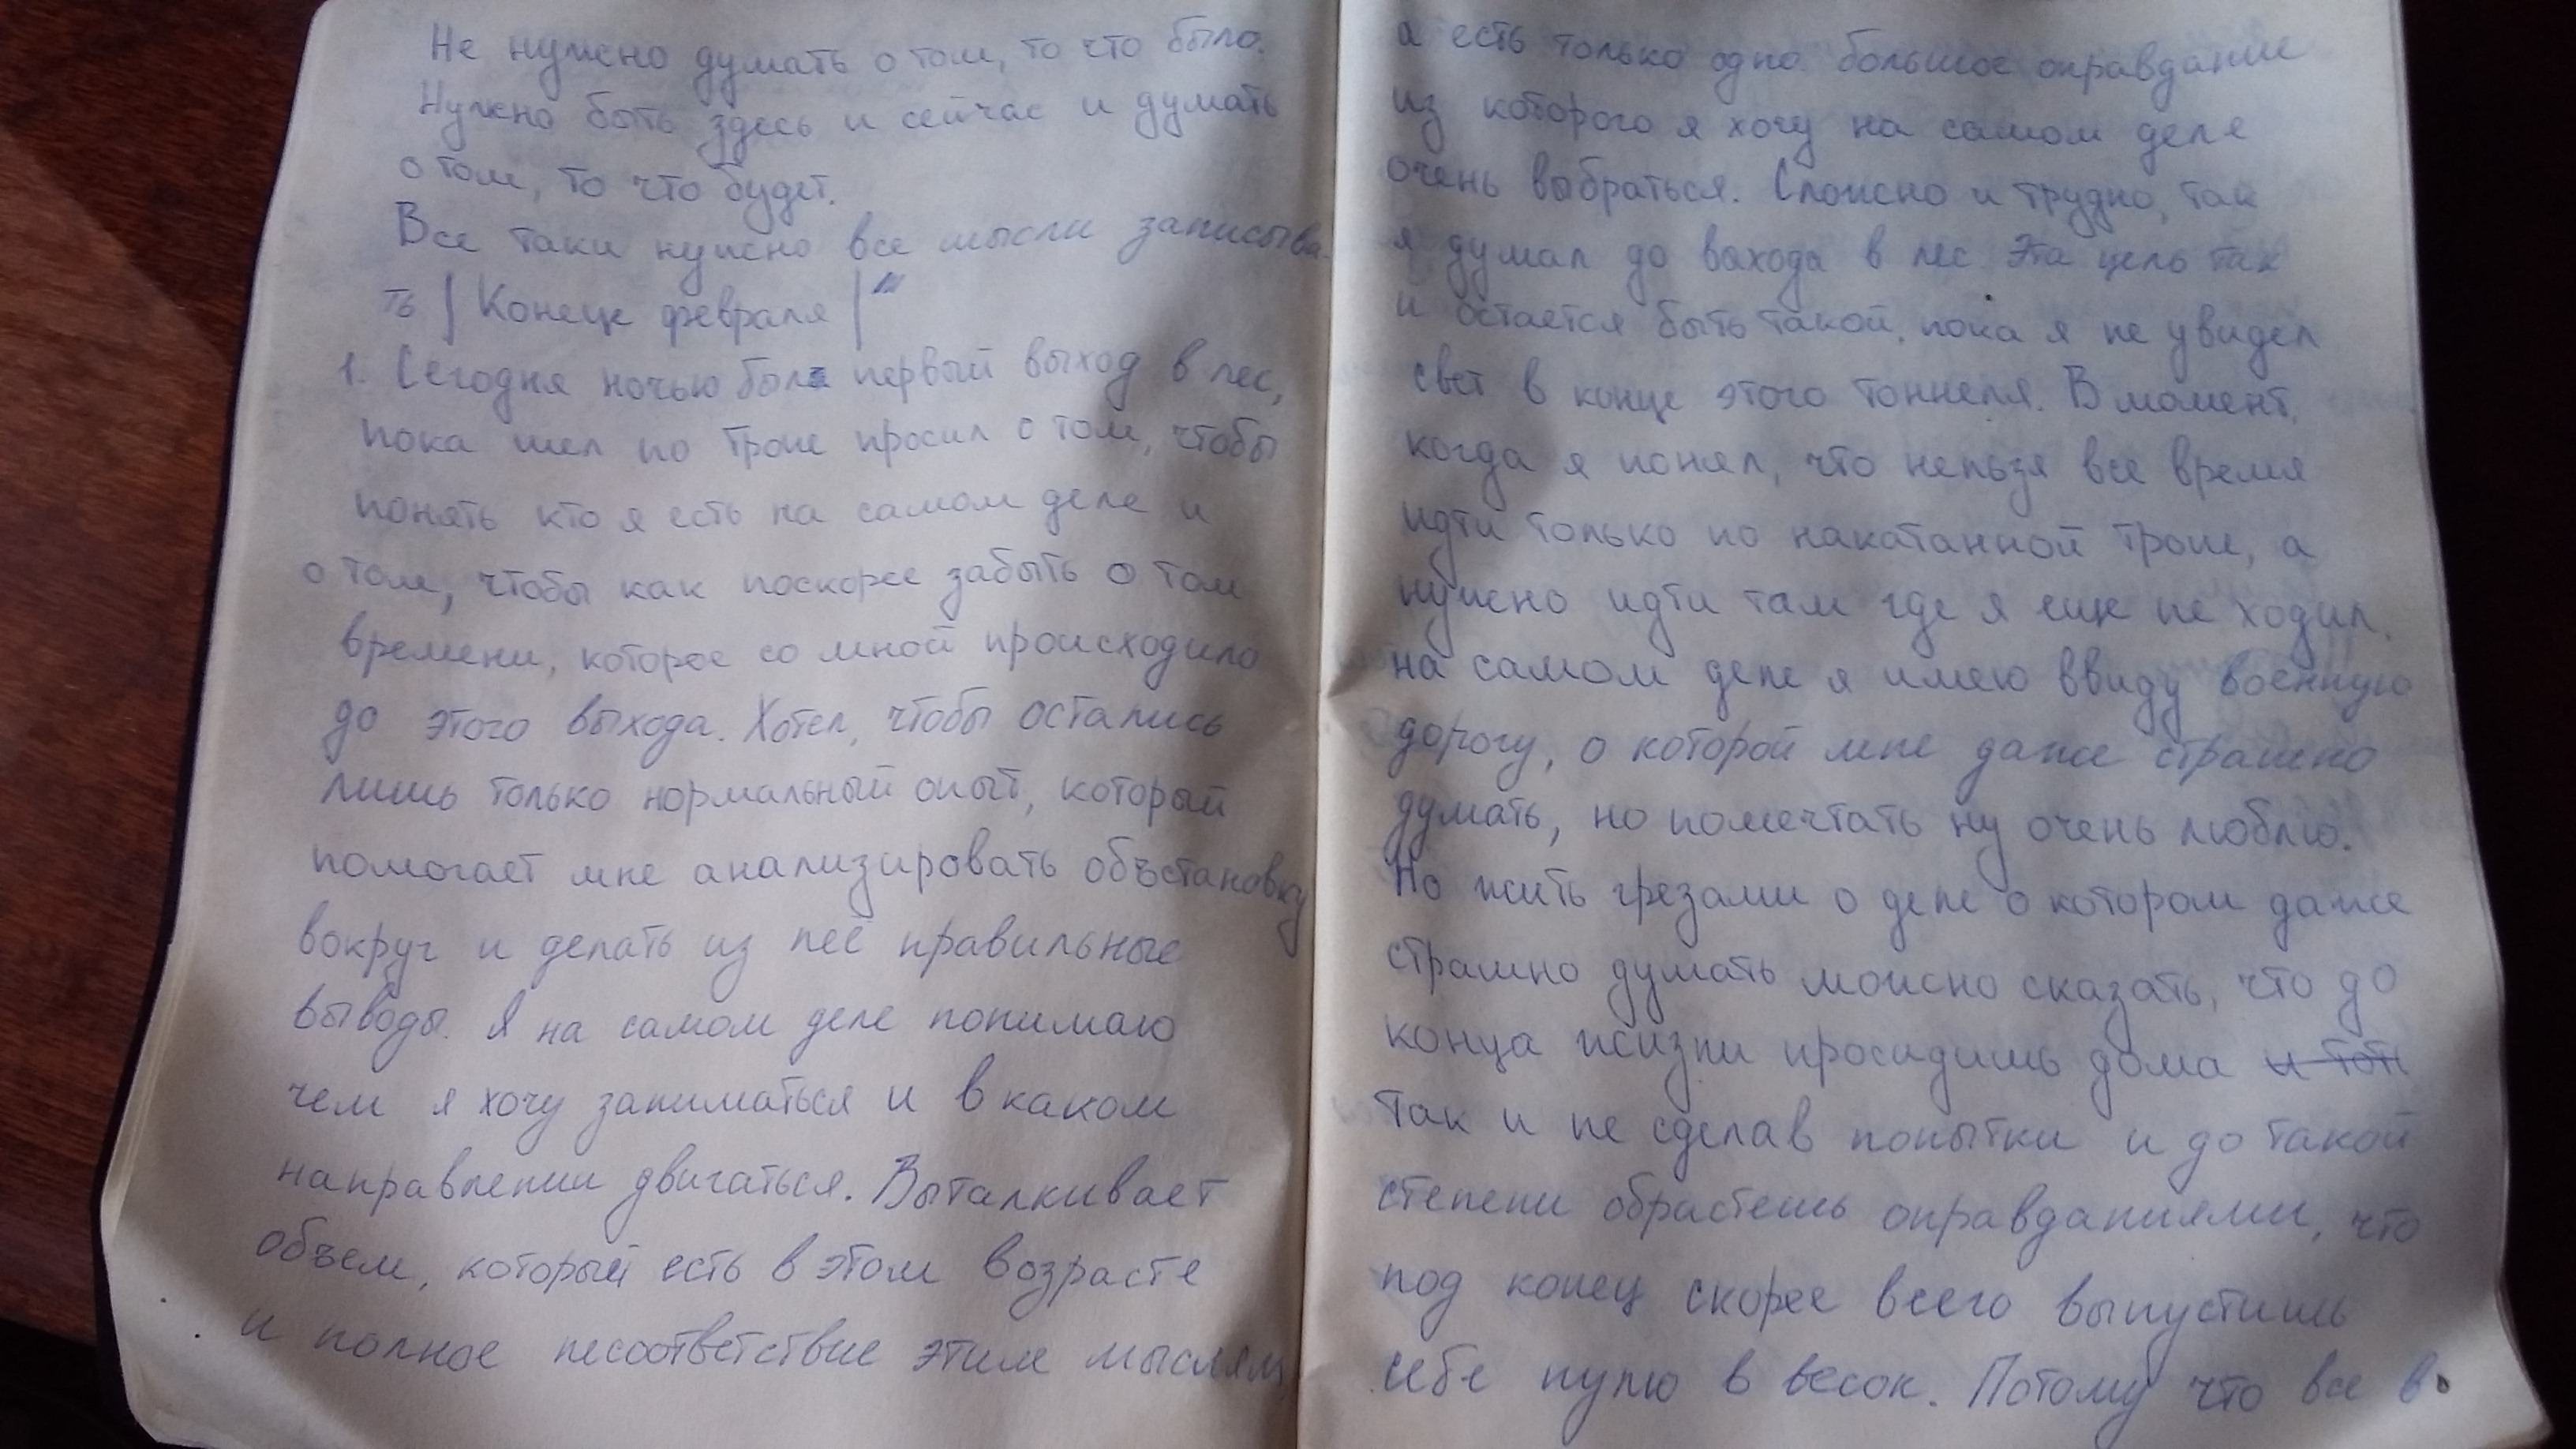 Не нужно думать о том, то что было.
Нужно быть здесь и сейчас и думать
о том, то что будет.
Все таки нужно все мысли записыва
ть | Конеце февраля |
1. Сегодня ночью был первый выход в лес,
пока шел по тропе просил о том, чтобы
понять кто я есть на самом деле и
о том, чтобы как поскорее забыть о том
времени, которое со мной происходило
до этого выхода. Хотел, чтобы остались
лишь только нормальный опыт, который
помогает мне анализировать объстановку
вокруг и делать из неё правильные
выводы. Я на самом деле понимаю
чем я хочу заниматься и в каком
направлении двигаться. Выталкивает
объем, который есть в этом возрасте
и полное несоответствие этим мыслям
а есть только одно большое оправдание
из которого я хочу на самом деле
очень выбраться. Сложно и трудно, так
я думал до выхода в лес. Эта цель так
и остается быть такой, пока я не увидел
свет в конце этого тоннеля. В момент,
когда я понял, что нельзя все время
идти только по накатанной тропе, а
нужно идти там где я еще не ходил,
на самом деле я имею ввиду военную
дорогу, о которой мне даже страшно
думать, но помечтать ну очень люблю.
Но жить грезами о деле о котором даже
страшно думать можно сказать, что до
конца жизни просидишь дома
так и не сделав попытки и до такой
степени обрастешь оправданиями, что
под конец скорее всего выпустишь
себе пулю в весок. Потому что все в